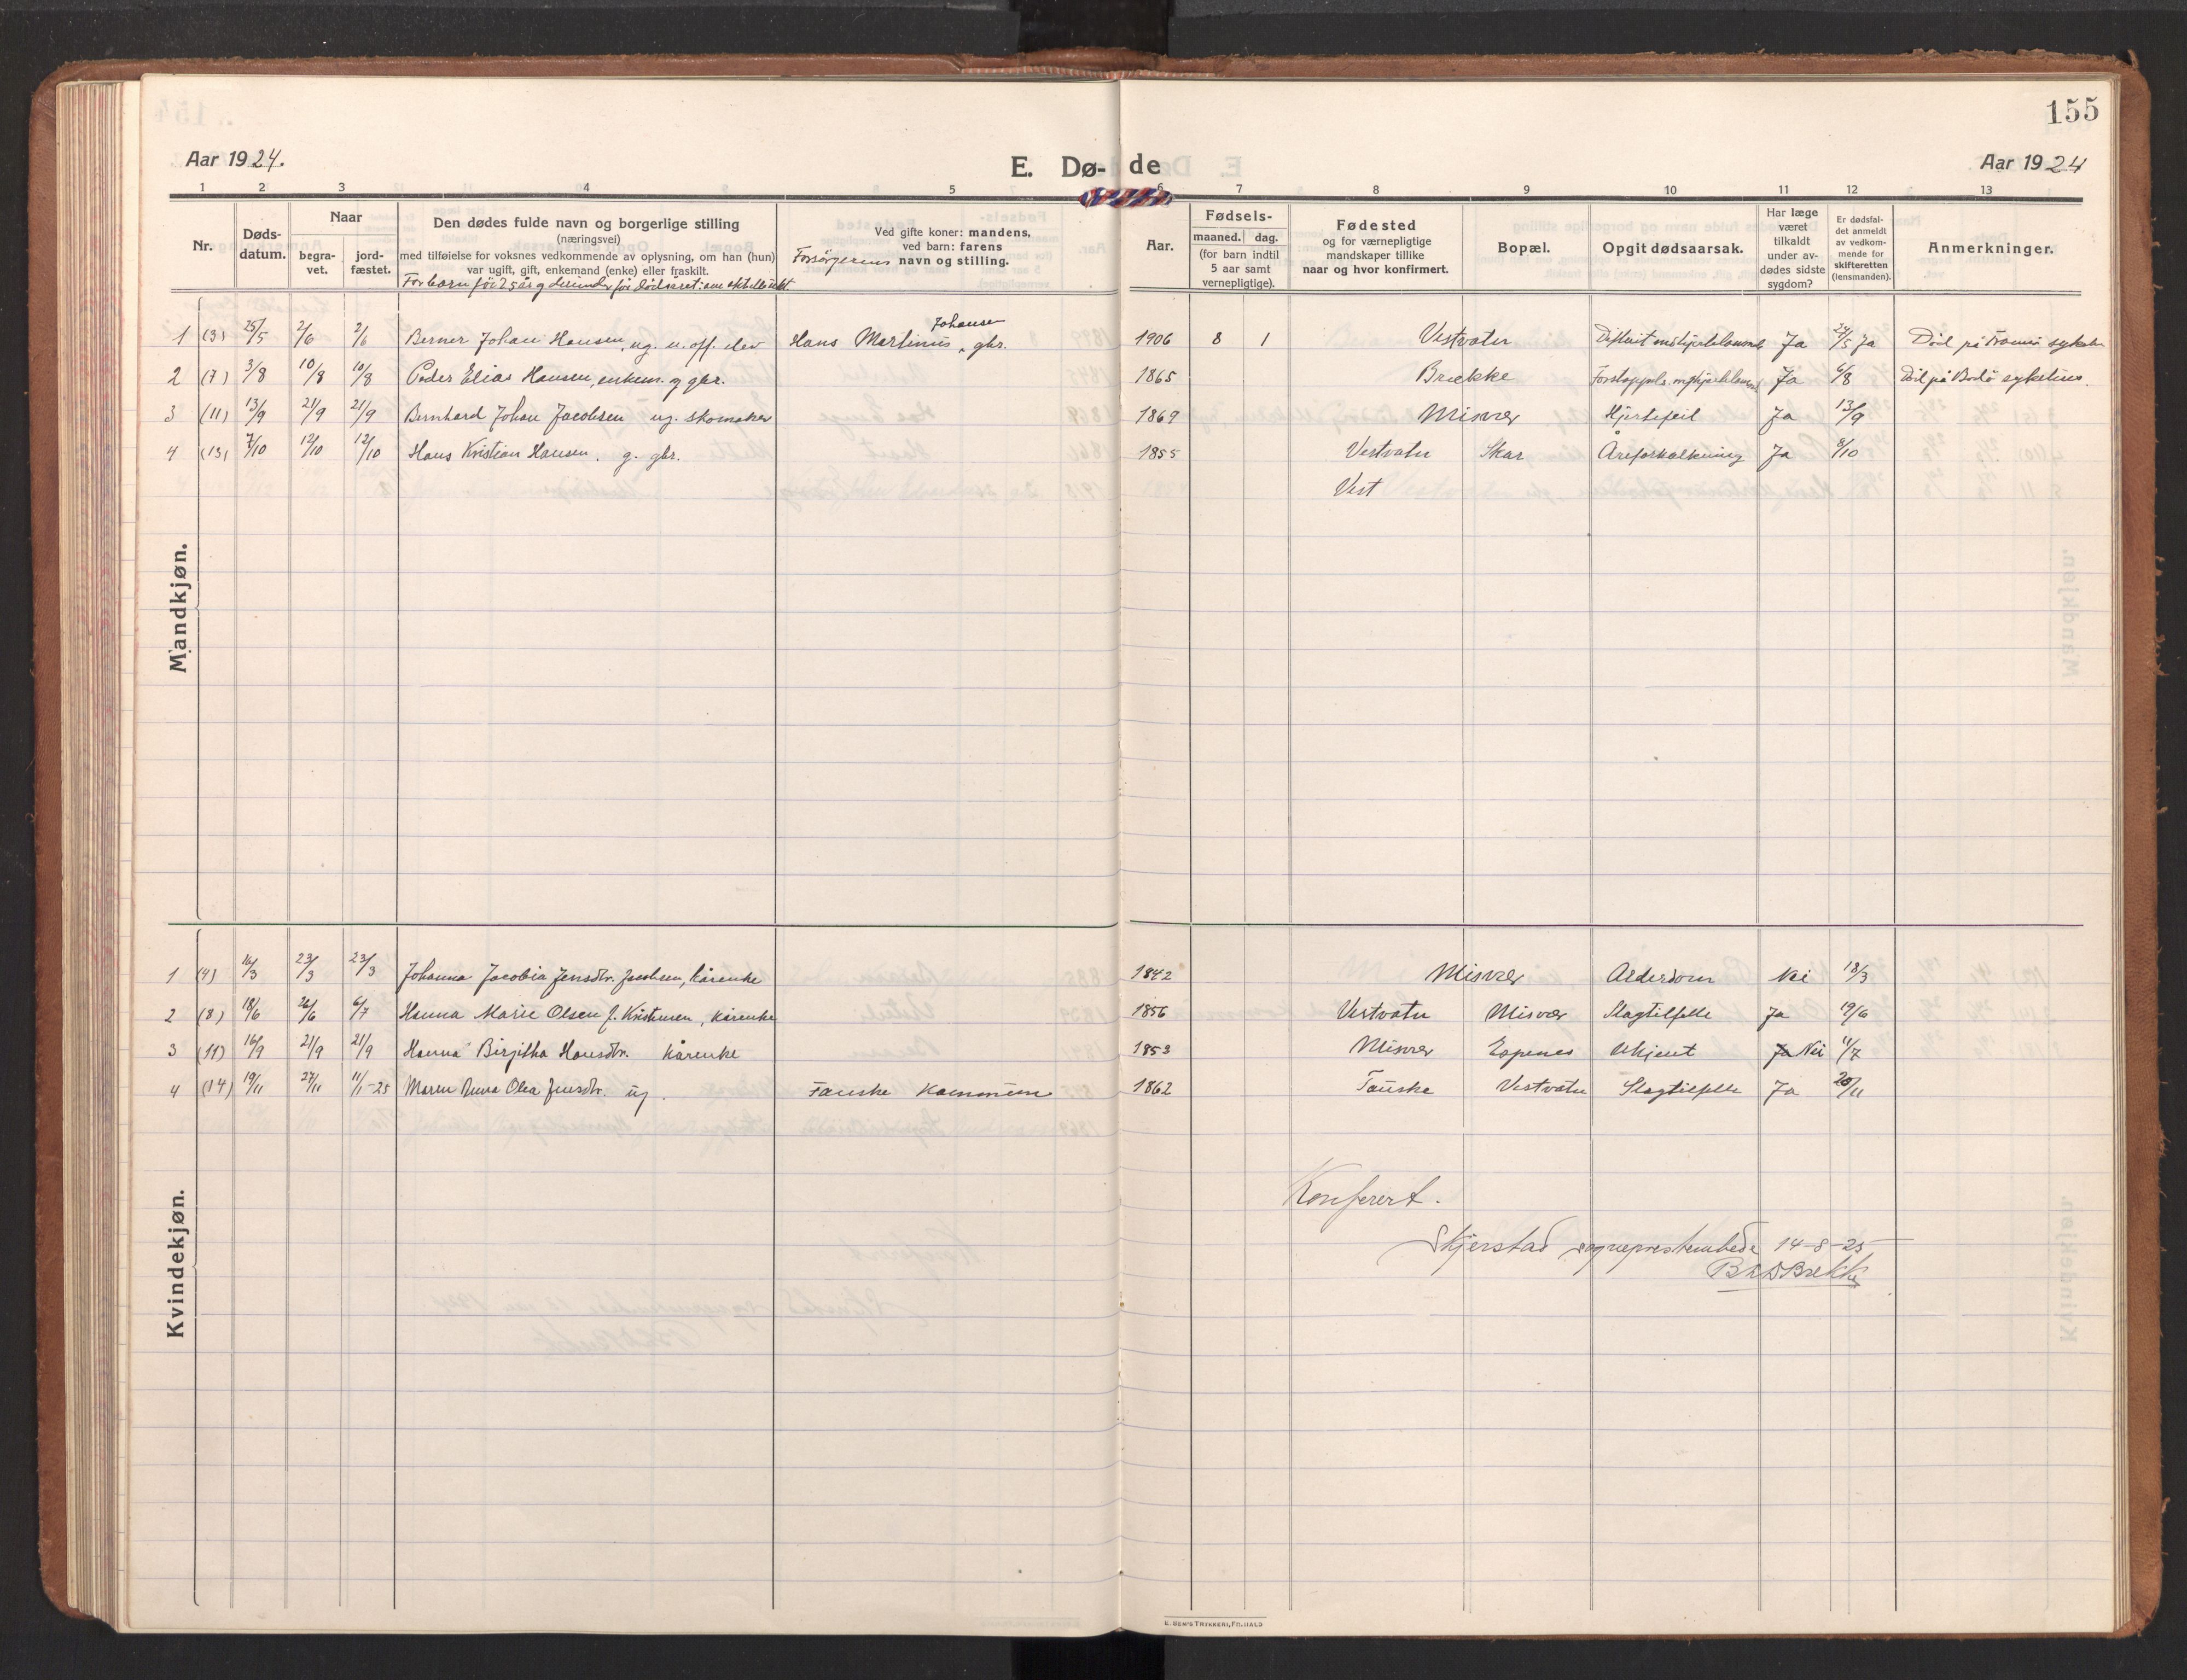 155
Aar 1924.
E. Dø-de
Aar 1924
1 2 3 4 5 6 7 8 9 10 11 12 13
Nr.
Døds-datum.
Naar
begra-vet.
jord-fæstet.
Den dødes fulde navn og borgerlige stilling
(næringsvei)
med tilføielse for voksnes vedkommende av oplysning, om han (hun)
var ugift, gift, enkemand (enke) eller fraskilt.
Ved gifte koner: mandens,
ved barn: farens
Forsørgerens navn og stilling.
Aar.
Fødsels-
maaned. dag.
(for barn indtil
5 aar samt
vernepligtige).
Fødested
og for værnepligtige
mandskaper tillike
naar og hvor konfirmert.
Bopæl.
Opgit dødsaarsak.
Har læge
været
tilkaldt
under av-
dødes sidste
sygdom?
Er dødsfal-
det anmeldt
av vedkom-
mende for
skifteretten
(lensmanden).
Anmerkninger.
Mandkjøn.
1 (3) 25/5 2/6 2/6 Berner Johan Hansen, ug. u. off. elev Hans Martinus Johansen, gbr. 1906 8 1 Vestvatn Ja 24/5 Ja Död på Tromsö
2 (7) 3/8 10/8 10/8 Peder Elias Hansen, enkem. g gbr. 1865 Brække Ja 6/8 Död på Bodö sykehus.
3 (11) 13/9 21/9 21/9 Bernhard Johan Jacobsen ug. skomaker 1869 Misvær Hjertefeil Ja 13/9
4 (13) 7/10 12/10 12/10 Hans Kristian Hansen. g. gbr. 1855 Vestvatn Skar Åreforkalkning Ja 8/10
Vest
Kvindekjøn.
1 (4) 16/3 23/3 23/3 Johanna Jacobia Jensdtr. Jacobsen, kårenke 1842 Misvær Alderdom Nei 18/3
2 (8) 18/6 26/6 6/7 Hanna Marie Olsen f. Kristensen, kårenke 1856 Vestvatn Misvær Slagtilfelle Ja 19/6
3 (11) 16/9 21/9 21/9 Hanna Birgitha Hansdtr. kårenke 1853 Misvær Espenes Ukjent Ja Nei 11/7
4 (14) 19/11 27/11 11/1-25 Maren Anna Olea Jensdtr. ug. Fauske kommune 1862 Fauske Vestvatn Slagtilfelle Ja 20/11
Konferert.
Skjerstad sogneprestembede 14-8-25
E. SEM'S TRYKKERI, FR.HALD